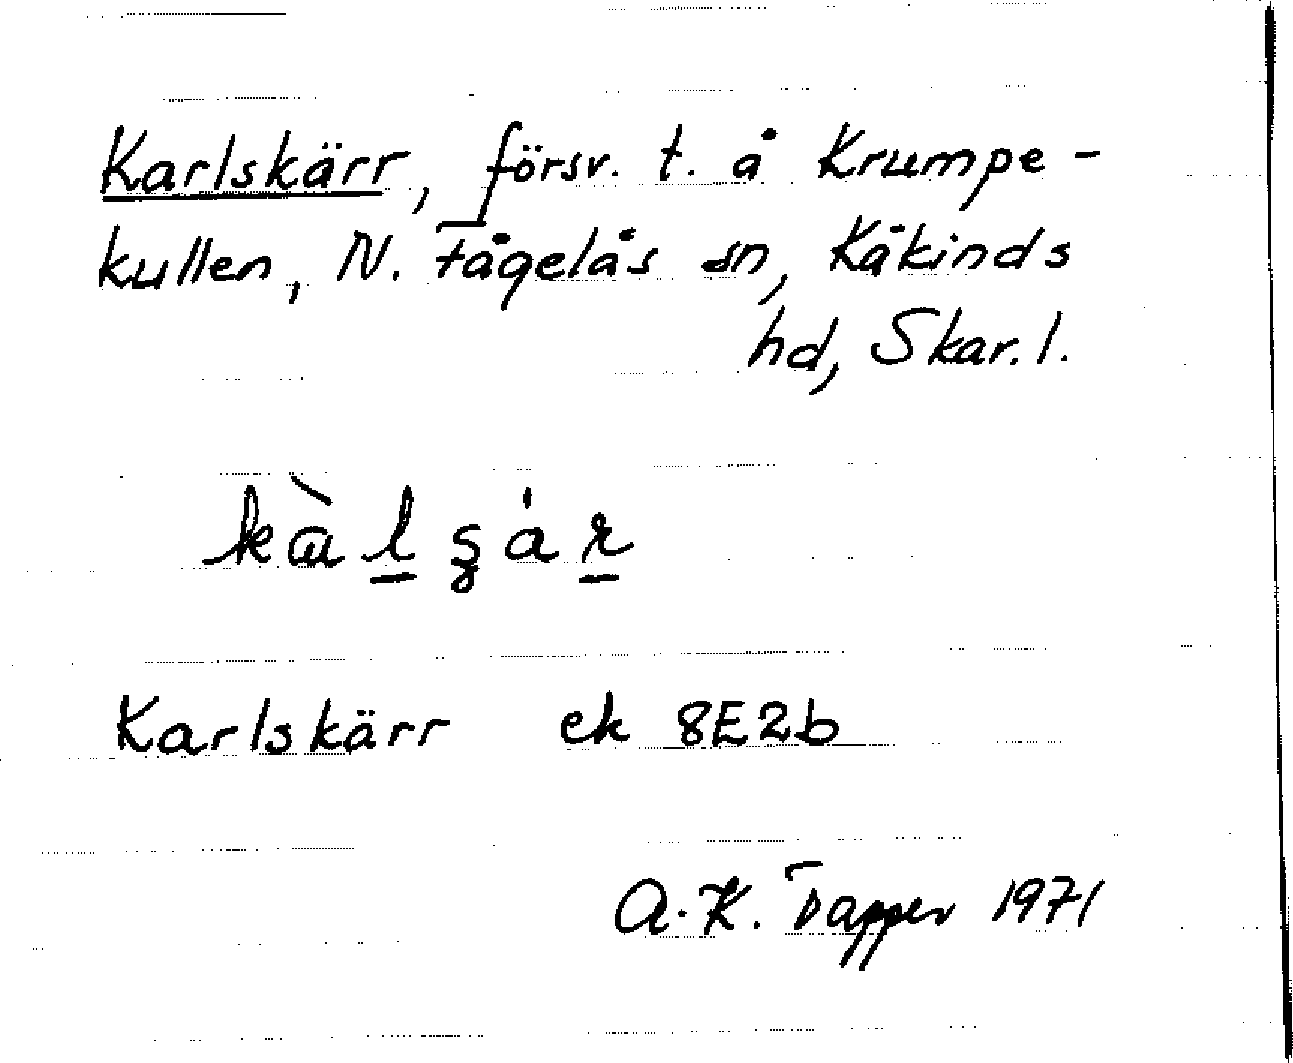 Karlskärr, försv. t. å Krumpe-
kullen, N. Fågelås sn, Kåkinds
hd, Skar. l.
Karlskärr ek 8E2b
A.-K. 1971